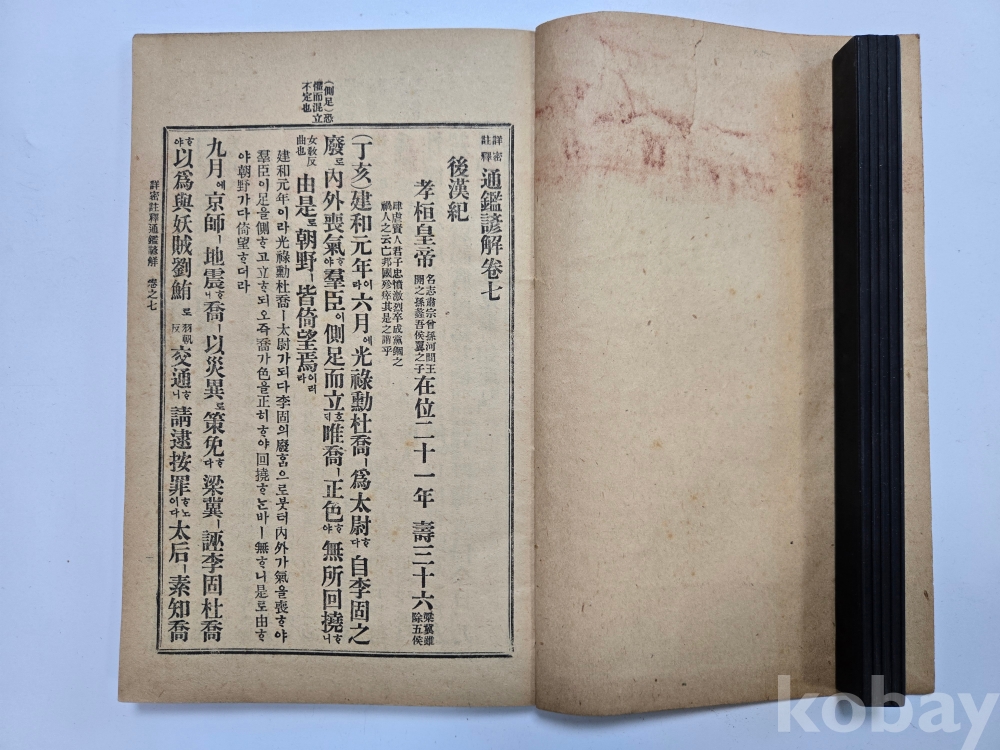 詳密註釋通鑑諺解卷七
後漢紀
孝桓皇帝 名志肅宗曾孫河間王開之孫蠡吾侯翼之子 在位二十一年 壽三十六 梁冀雖除五侯
肆虐賢人君子忠憤激烈卒成黨錮之禍人之云亡邦國殄瘁其是之謂乎
(丁亥)建和元年이라六月에光祿勳杜喬ㅣ爲太尉하다自李固之
廢로內外喪氣하야羣臣이側足而立호되唯喬ㅣ正色하야無所回撓하니
(側足)恐懼而混立不定也
女敎反曲也 由是로朝野ㅣ皆倚望焉이러라
建和元年이라光祿勳杜喬ㅣ太尉가되다李固의廢홈으로붓터內外가氣을喪하야
羣臣이足을側하고立하되오즉喬가色을正히하야回撓하는바ㅣ無하니是로由하
야朝野가다倚望하더라
九月에京師ㅣ地震하니喬ㅣ以災異로策免하다梁冀ㅣ誣李固杜喬
하야以爲與妖賊劉鮪로 羽軌反 交通하니請逮按罪하노이다太后ㅣ素知喬
詳密註釋通鑑諺解 卷之七
kobay